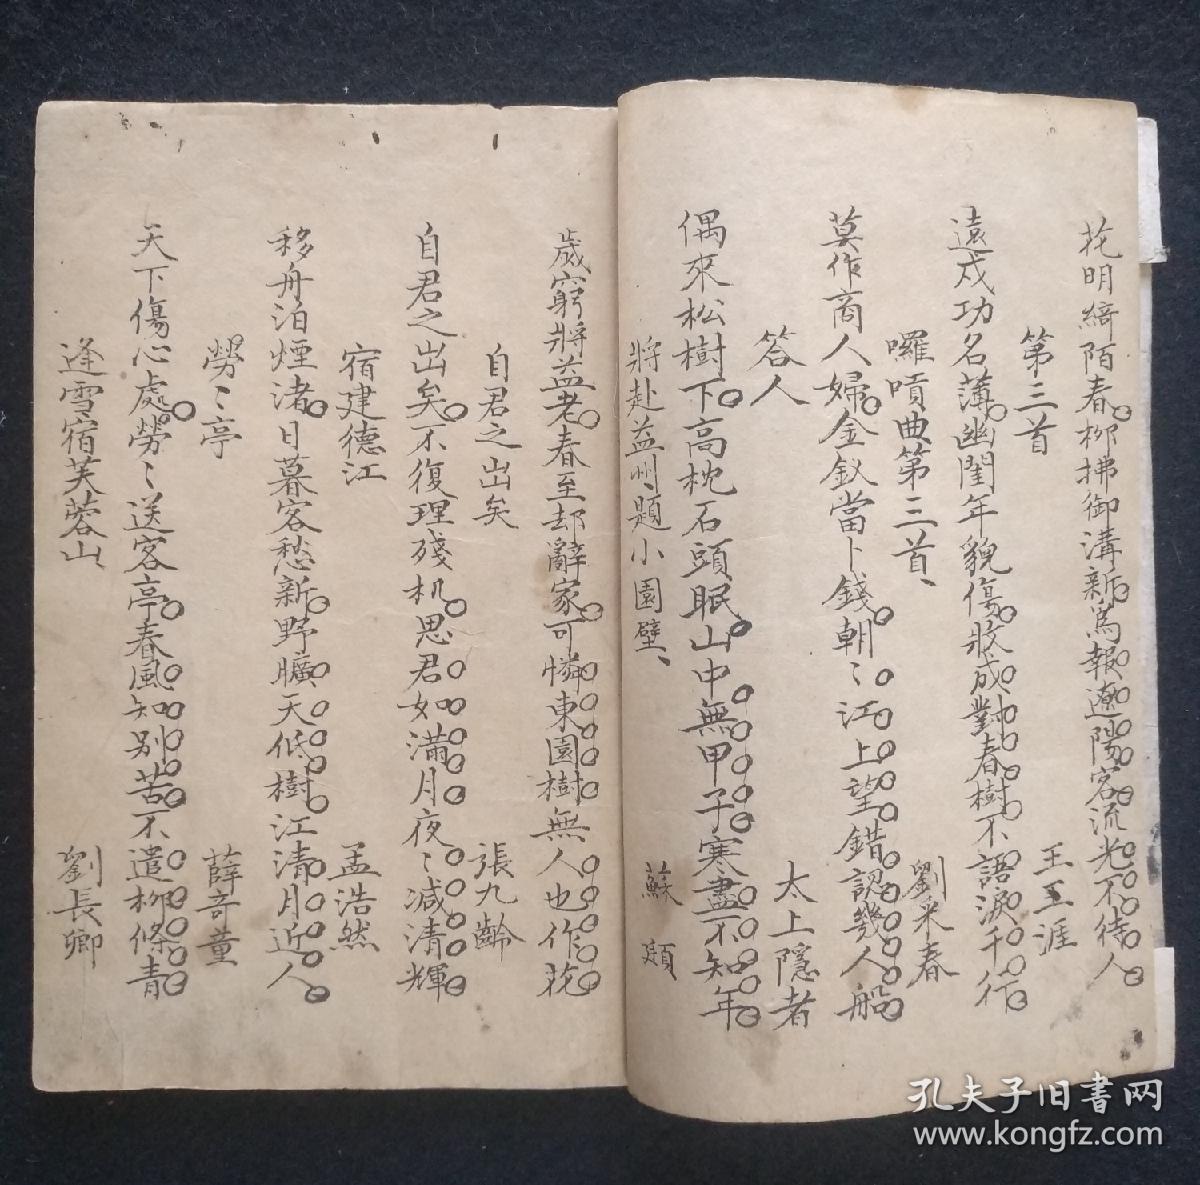 花明綺陌春。柳拂御溝新。爲報遼陽客。流光不待人。
第三首 王工涯
遠戍功名薄。幽閨年貌傷。妝成對春樹。不語淚千行。
囉嗊曲第三首、 劉采春
莫作商人婦。金釵當卜錢。朝〻江上望。錯認幾人船。
答人 太上隱者
偶來松樹下。高枕石頭眠。山中無甲子。寒盡不知年。
將赴益州題小園壁、 蘇頲
歲窮將益老。春至却辭家。可憐東園樹。無人也作花。
自君之出矣 張九齡
自君之出矣。不復理殘机。思君如滿月。夜〻減清輝。
宿建德江 孟浩然
移舟泊煙渚。日暮客愁新。野曠天低樹。江清月近人。
勞〻亭 薛奇董
天下傷心處。勞〻送客亭。春風知別苦。不遣柳條青。
逢雪宿芙蓉山 劉長卿
孔夫子旧书网
www.kongfz.com